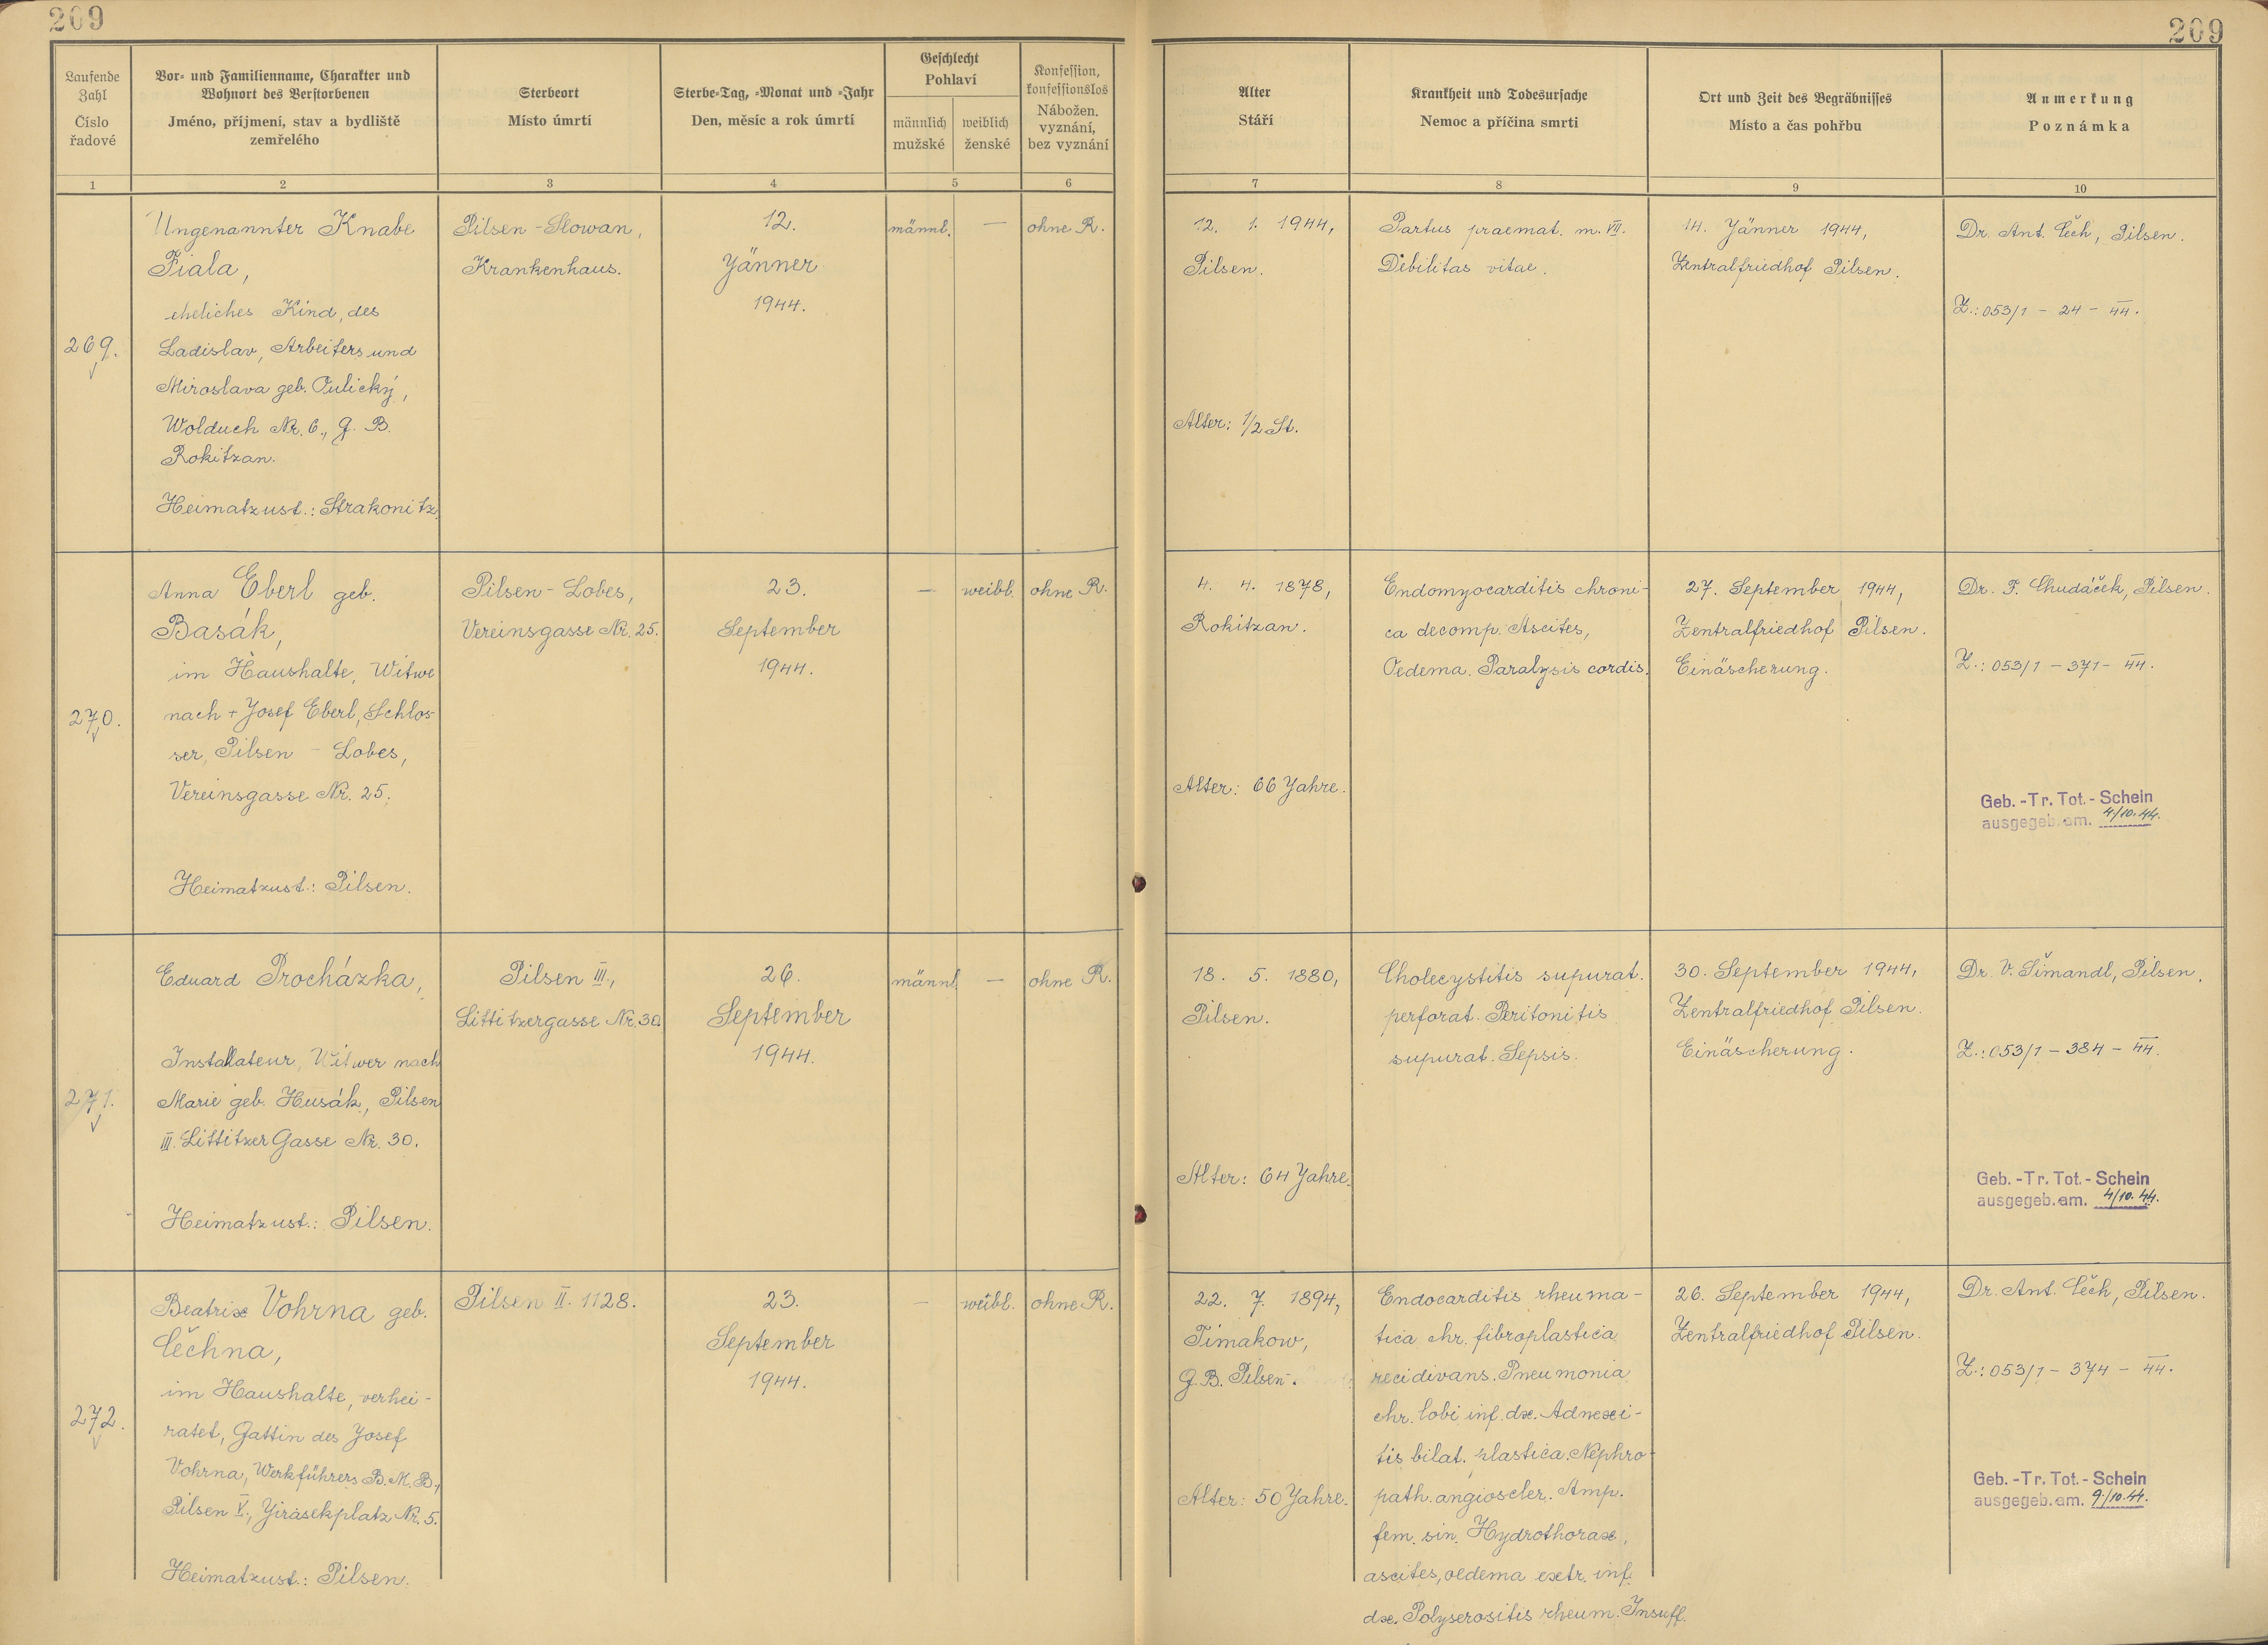 209
209
Laufende
Zahl
Číslo
řadové
Vor- und Familienname, Charakter und
Wohnort des Verstorbenen
Jméno, příjmení, stav a bydliště
zemřelého
Sterbeort
Místo úmrtí
Sterbe-Tag, -Monat und -Jahr
Den, měsíc a rok úmrtí
Geschlecht
Pohlaví
männlich
mužské
weiblich
ženské
Konfession,
konfessionslos
Nábožen.
vyznání,
bez vyznání
Alter
Stáří
Krankheit und Todesursache
Nemoc a příčina smrti
Ort und Zeit des Begräbnisses
Místo a čas pohřbu
Anmerkung
Poznámka
1
2
3
4
5
6
7
8
9
10
269.
Ungenannter Knabe
Fiala,
eheliches Kind, des
Ladislav, Arbeiters und
Miroslava geb. Oulický,
Wolduch Nr. 6., G. B.
Rokitzan.
Heimatzust.: Strakonitz.
Pilsen - Slowan,
Krankenhaus.
12.
Jänner
1944.
männl.
—
ohne R.
12. 1. 1944,
Pilsen.
Alter: 1/2 St.
Partus praemat. m. VII.
Debilitas vitae.
14. Jänner 1944,
Zentralfriedhof Pilsen.
Dr. Ant. Čech, Pilsen.
Z.: 053/1 - 24 - 44.
270.
Anna Eberl geb.
Basák,
im Haushalte, Witwe
nach + Josef Eberl, Schlos-
ser, Pilsen - Lobes,
Vereinsgasse Nr. 25.
Heimatzust.: Pilsen.
Pilsen - Lobes,
Vereinsgasse Nr. 25.
23.
September
1944.
—
weibl.
ohne R.
4. 4. 1878,
Rokitzan.
Alter: 66 Jahre.
Endomyocarditis chroni-
ca decomp. Ascites,
Oedema. Paralysis cordis.
27. September 1944,
Zentralfriedhof Pilsen.
Einäscherung.
Dr. F. Chudáček, Pilsen.
Z.: 053/1 - 371 - 44.
Geb. -Tr. Tot.- Schein
ausgegeb. am. 4/10.44.
271.
Eduard Procházka,
Installateur, Witwer nach
Marie geb. Husák, Pilsen
III. Littitzer Gasse Nr. 30.
Heimatzust.: Pilsen.
Pilsen III.,
Littitzergasse Nr. 30.
26.
September
1944.
männl.
—
ohne R.
18. 5. 1880,
Pilsen.
Alter: 64 Jahre.
Cholecystitis supurat.
perforat. Peritonitis
supurat. Sepsis.
30. September 1944,
Zentralfriedhof Pilsen.
Einäscherung.
Dr. V. Šimandl, Pilsen.
Z.: 053/1 - 384 - 44.
Geb. -Tr. Tot.- Schein
ausgegeb. am. 4/10.44.
272.
Beatrix Vohrna geb.
Čechna,
im Haushalte, verhei-
ratet, Gattin des Josef
Vohrna, Werkführers B. M. B.,
Pilsen V., Jirásekplatz Nr. 5.
Heimatzust.: Pilsen.
Pilsen II. 1128.
23.
September
1944.
—
weibl.
ohne R.
22. 7. 1894,
Timakow,
G. B. Pilsen.
Alter: 50 Jahre.
Endocarditis rheuma-
tica chr. fibroplastica
recidivans. Pneumonia
chr. lobi inf. dx. Adnexi-
tis bilat. plastica. Nephro-
path. angioscler. Amp.
fem. sin. Hydrothorax,
ascites, oedema extr. inf.
dx. Polyserositis rheum. Insuff.
26. September 1944,
Zentralfriedhof Pilsen.
Dr. Ant. Čech, Pilsen.
Z.: 053/1 - 374 - 44.
Geb. -Tr. Tot.- Schein
ausgegeb. am. 9/10.44.